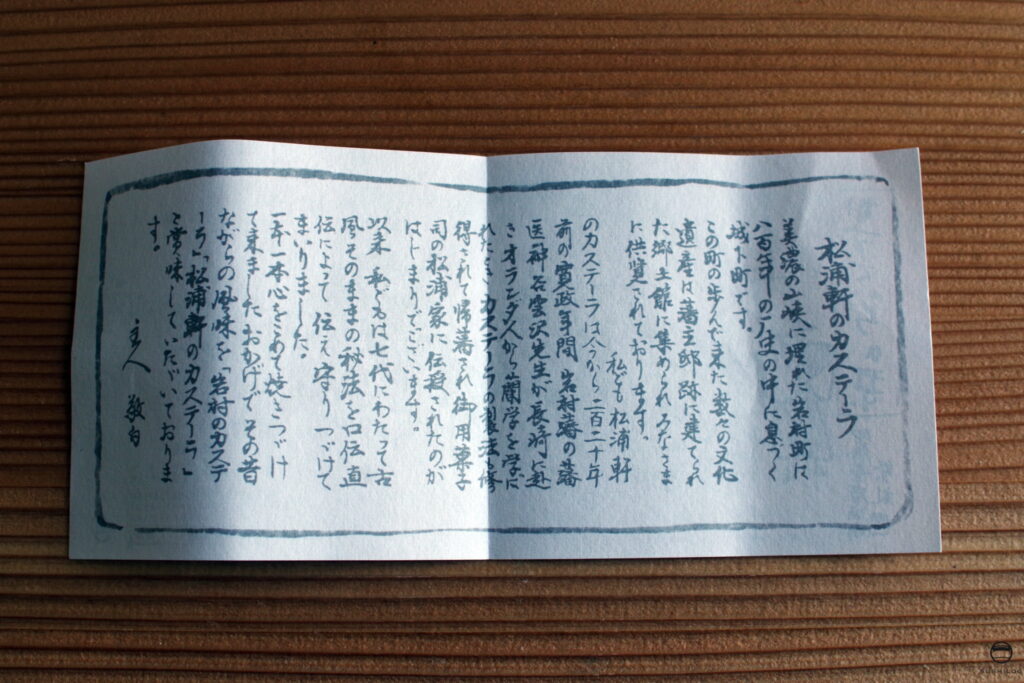 松浦軒のカステーラ
美濃の山峡に埋れた岩村町に
八百年の歴史の中に息づく
城下町です。
この町の歩んで来た数々の文化
遺産は藩主邸跡に建てられ
た郷土館に集められみなさま
に供覧されております。
私ども松浦軒
のカステーラは今から二百二十年
前の寛政年間 岩村藩の藩
医神谷雲沢先生が長崎に赴
きオランダ人から蘭学を学に
れたとき カステーラの製法も修
得されて帰藩され御用菓子
司の松浦家に伝授されたのが
はじまりでございます。
以来 私どもは七代にわたって古
風そのままの秘法を口伝直
伝によって 伝え 守り つづけて
まいりました。
一本一本心をこめて焼きつづけ
て来ました おかげでその昔
ながらの風味を「岩村のカステ
ーラ」「松浦軒のカステーラ」
と常味していたゞいておりま
す。
主人 敬白